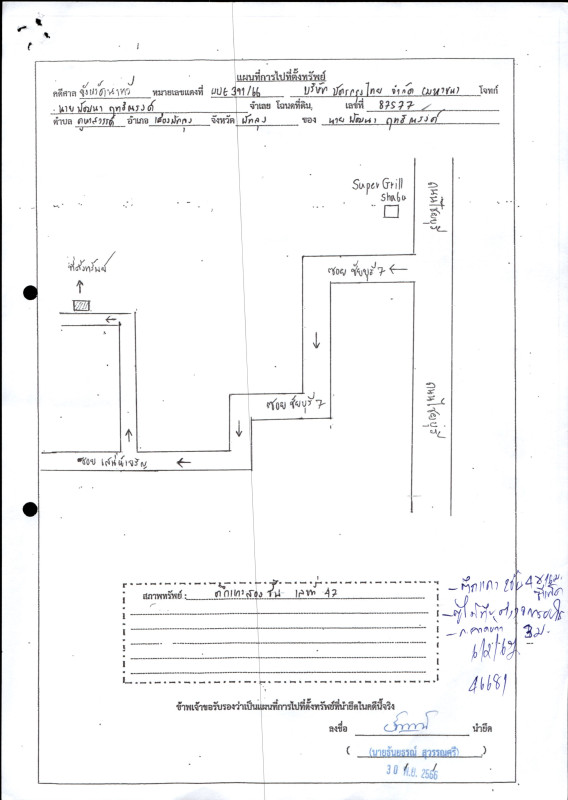 แผนที่การไปที่ตั้งทรัพย์
คดีศาล จังหวัดนาทวี หมายเลขแดงที่ ผบE 391/66 บริษัท บัตรกรุงไทย จำกัด (มหาชน) โจทก์
นาย พัฒนา ฤทธิณรงค์ จำเลย โฉนดที่ดิน, เลขที่ 87577
ตำบล คูหาสวรรค์ อำเภอ เมืองพัทลุง จังหวัด พัทลุง ของ นาย พัฒนา ฤทธิณรงค์
Super Grill
Shabu
ถนนไชยบุรี
ที่ตั้งทรัพย์
ซอย ชัยบุรี 7
ถนนไชยบุรี
ซอย ชัยบุรี 7
ซอย เสน่ห์เจริญ
สภาพทรัพย์ : ตึกแถวสองชั้น เลขที่ 42
3 ม.
46681
ข้าพเจ้าขอรับรองว่าเป็นแผนที่การไปที่ตั้งทรัพย์ที่นำยึดในคดีนี้จริง
ลงชื่อ นำยึด
(นายธันยธรณ์ สุวรรณศรี)
30 พ.ย. 2566